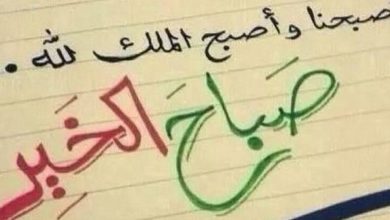 صبحنا وأصبح الملك لله .
صَبَاحَ الخَير